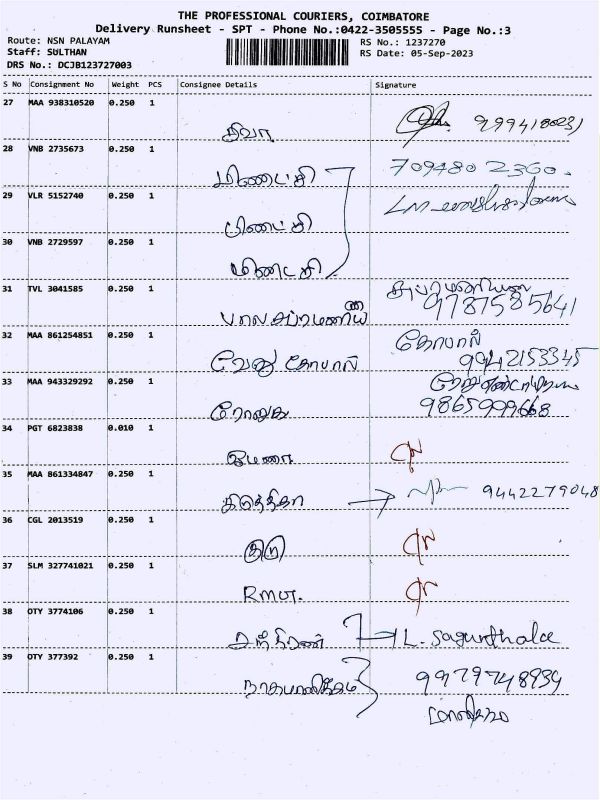 THE PROFESSIONAL COURIERS, COIMBATORE
Delivery Runsheet - SPT - Phone No.:0422-3505555 - Page No.:3
Route: NSN PALAYAM
RS No.: 1237270
Staff: SULTHAN
RS Date: 05-Sep-2023
DRS No.: DCJB123727003
S No Consignment No Weight PCS Consignee Details Signature
27 MAA 938310520 0.250 1
சிவா
28 VNB 2735673 0.250 1
மீனாட்சி 709480 2360.
29 VLR 5152740 0.250 1
மீனாட்சி
30 VNB 2729597 0.250 1
மீனாட்சி
31 TVL 3041585 0.250 1
பாலசுப்ரமணியம் 9787585641
32 MAA 861254851 0.250 1 கோபால்
வேணு கோபால் 9942153345
33 MAA 943329292 0.250 1
9865999668
34 PGT 6823838 0.010 1
35 MAA 861334847 0.250 1
கிருத்திகா 9442279048
36 CGL 2013519 0.250 1
37 SLM 327741021 0.250 1
38 OTY 3774106 0.250 1
L. Sagunthala
39 OTY 377392 0.250 1
நாகமாணிக்கம் 9979748934